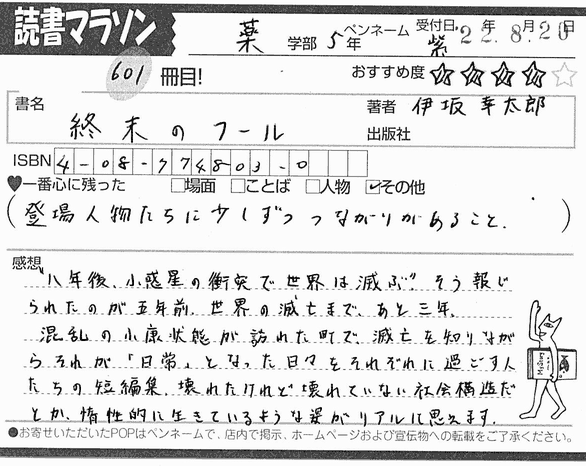 読書マラソン
薬 学部 5年 ペンネーム 紫 受付日 22年8月20日
601 冊目! おすすめ度 ★★★★☆
書名 終末のフール 著者 伊坂幸太郎
出版社
ISBN 4-08-774803-0
♥一番心に残った □場面 □ことば □人物 ☑その他
(登場人物たちに少しずつつながりがあること。)
感想
"八年後、小惑星の衝突で世界は滅ぶ"。そう報じ
られたのが五年前。世界の滅亡まで、あと三年。
混乱の小康状態が訪れた町で、滅亡を知りなが
らそれが「日常」となった日々をそれぞれに過ごす人
たちの短編集。壊れたけれど壊れていない社会構造だ
とか、惰性的に生きているような姿がリアルに思えます。
●お寄せいただいたPOPはペンネームで、店内で掲示、ホームページおよび宣伝物への転載をご了承ください。